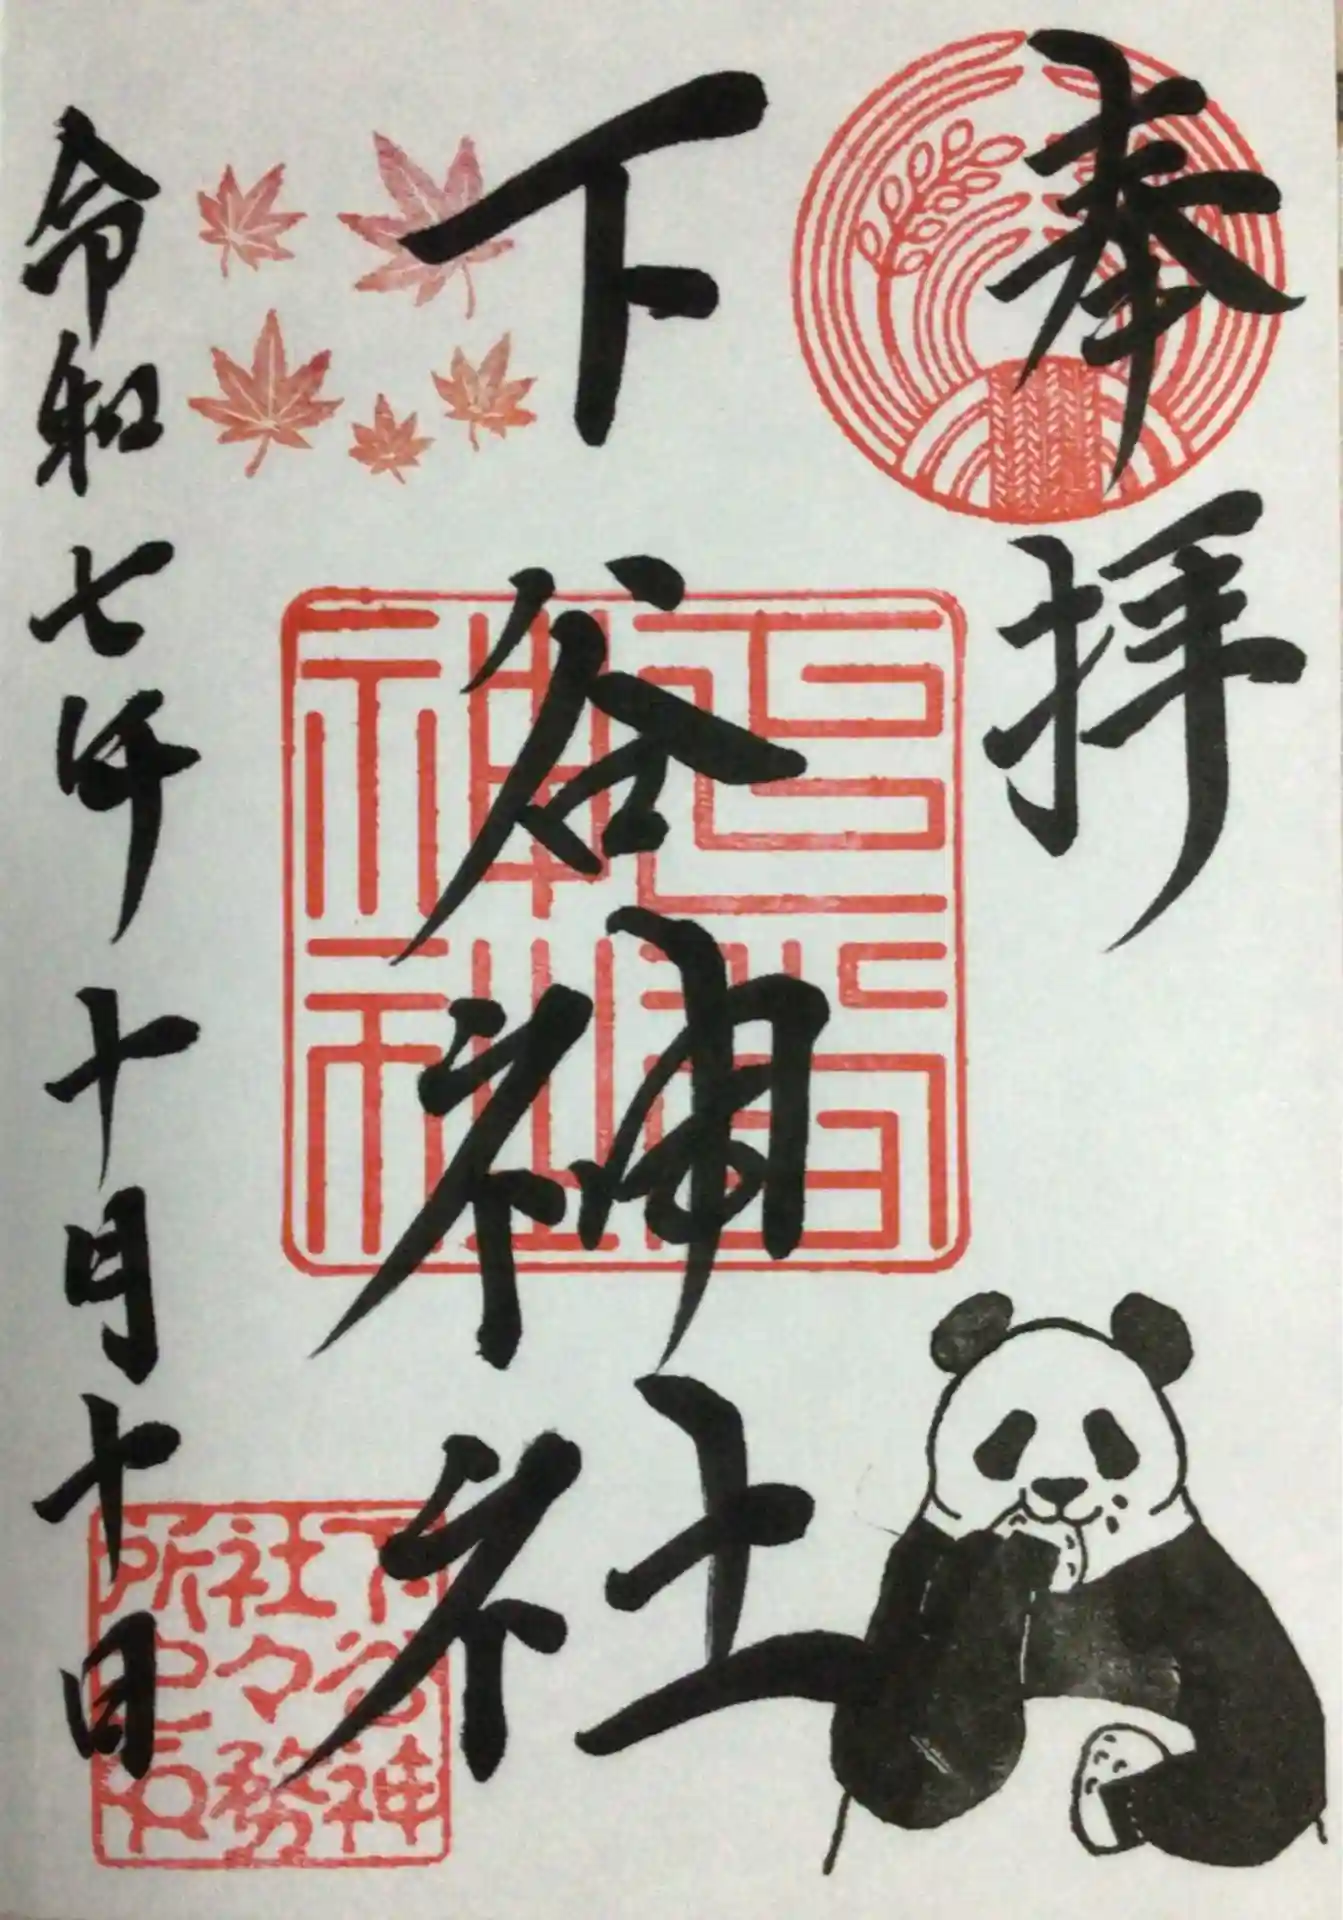 奉拝
下谷神社
令和七年十月十日
下谷神
社々務
所之印